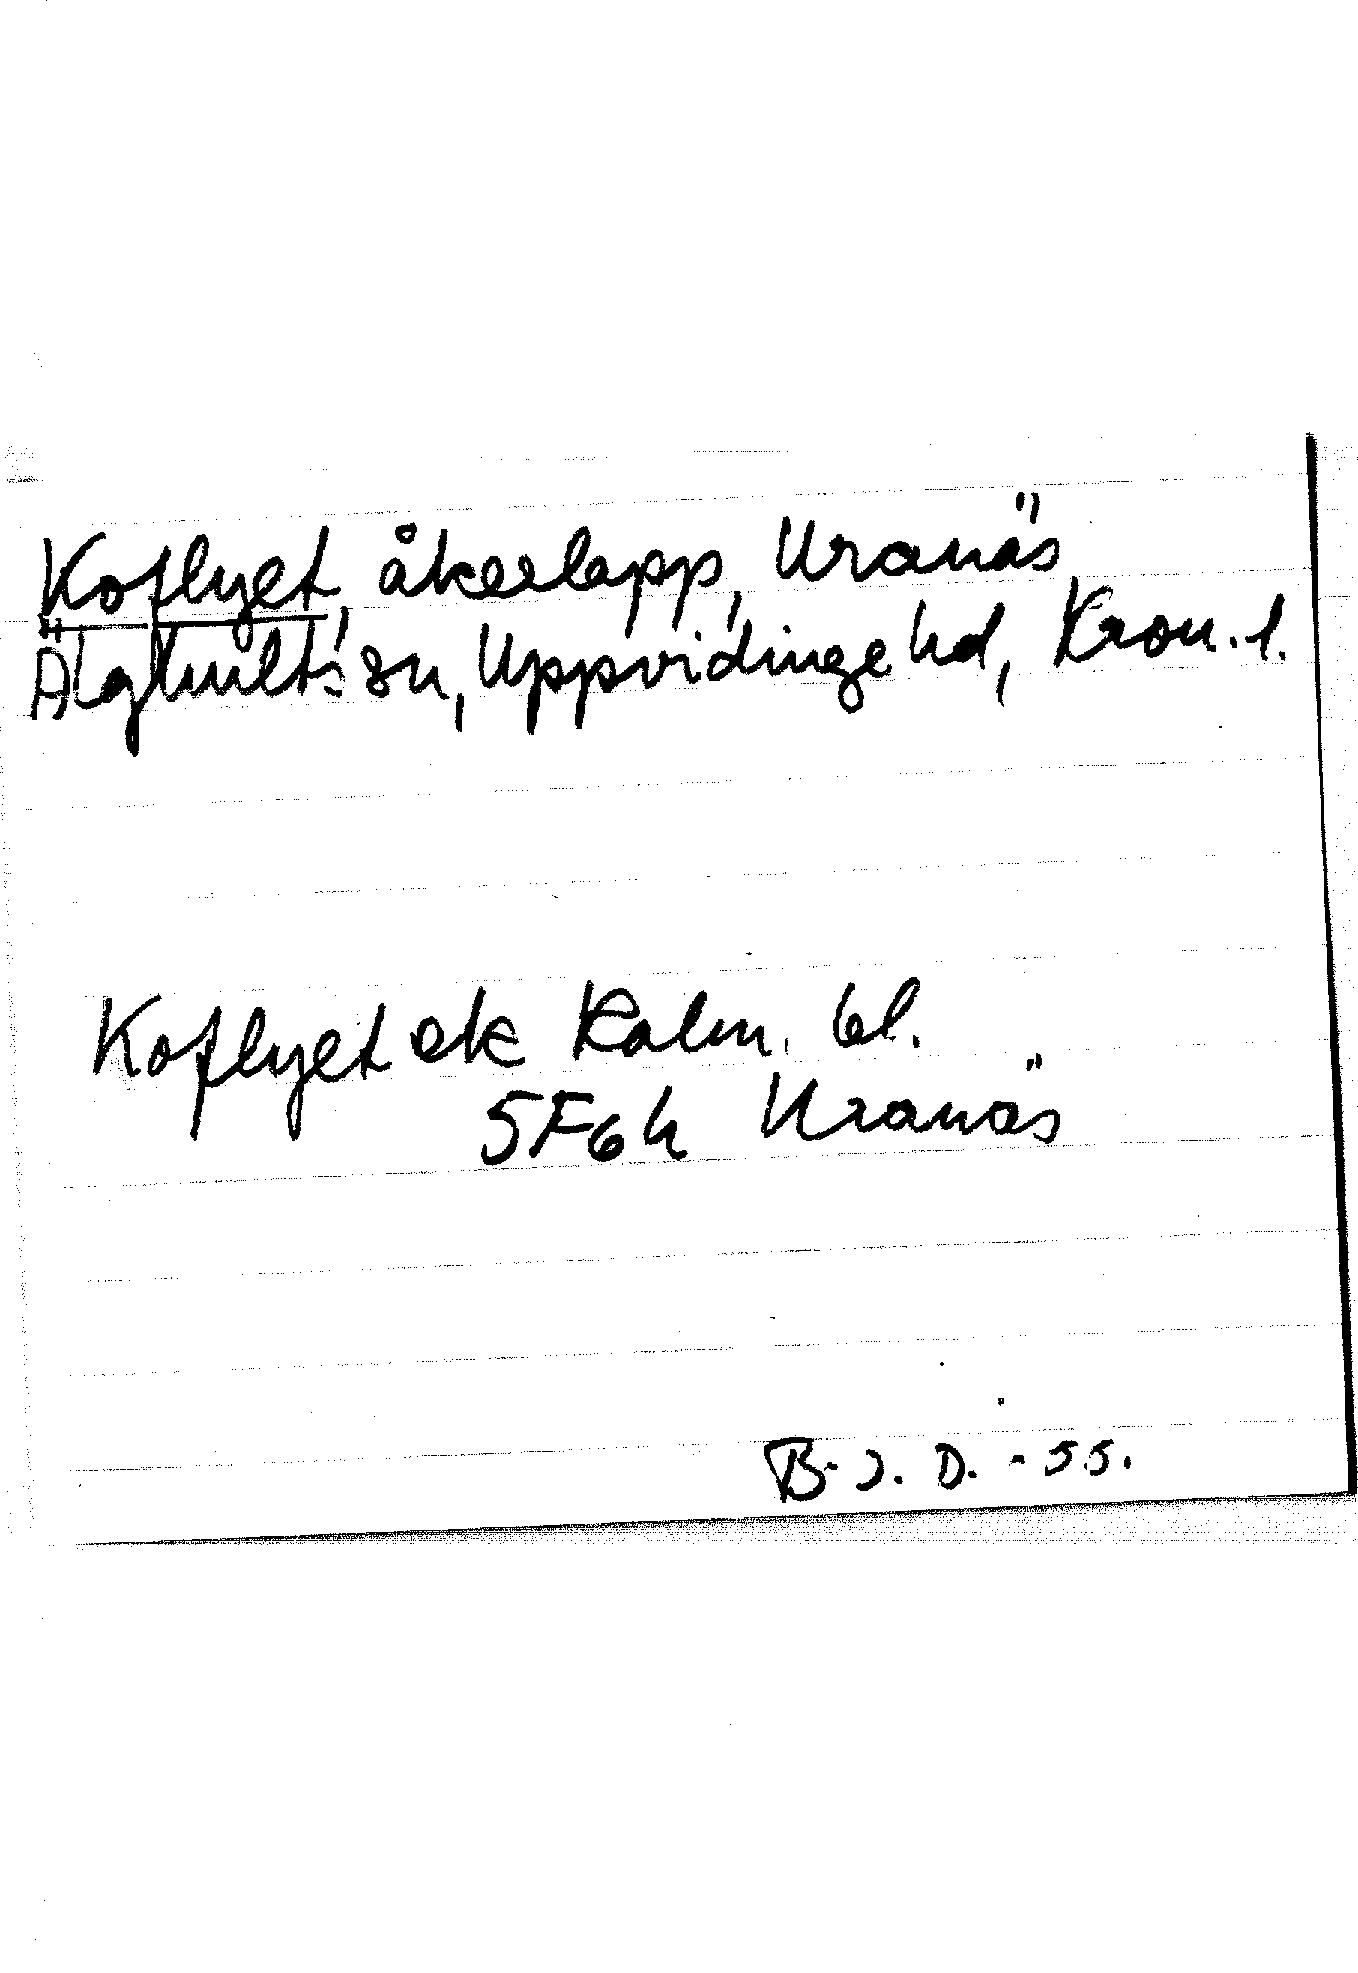 Koflyet, åkerlapp, Uranäs
Älghults sn, Uppvidinge hd, Kron. l.
Koflyet ek Kalm. bl.
5F6h Uranäs
B. J. D. - 55.